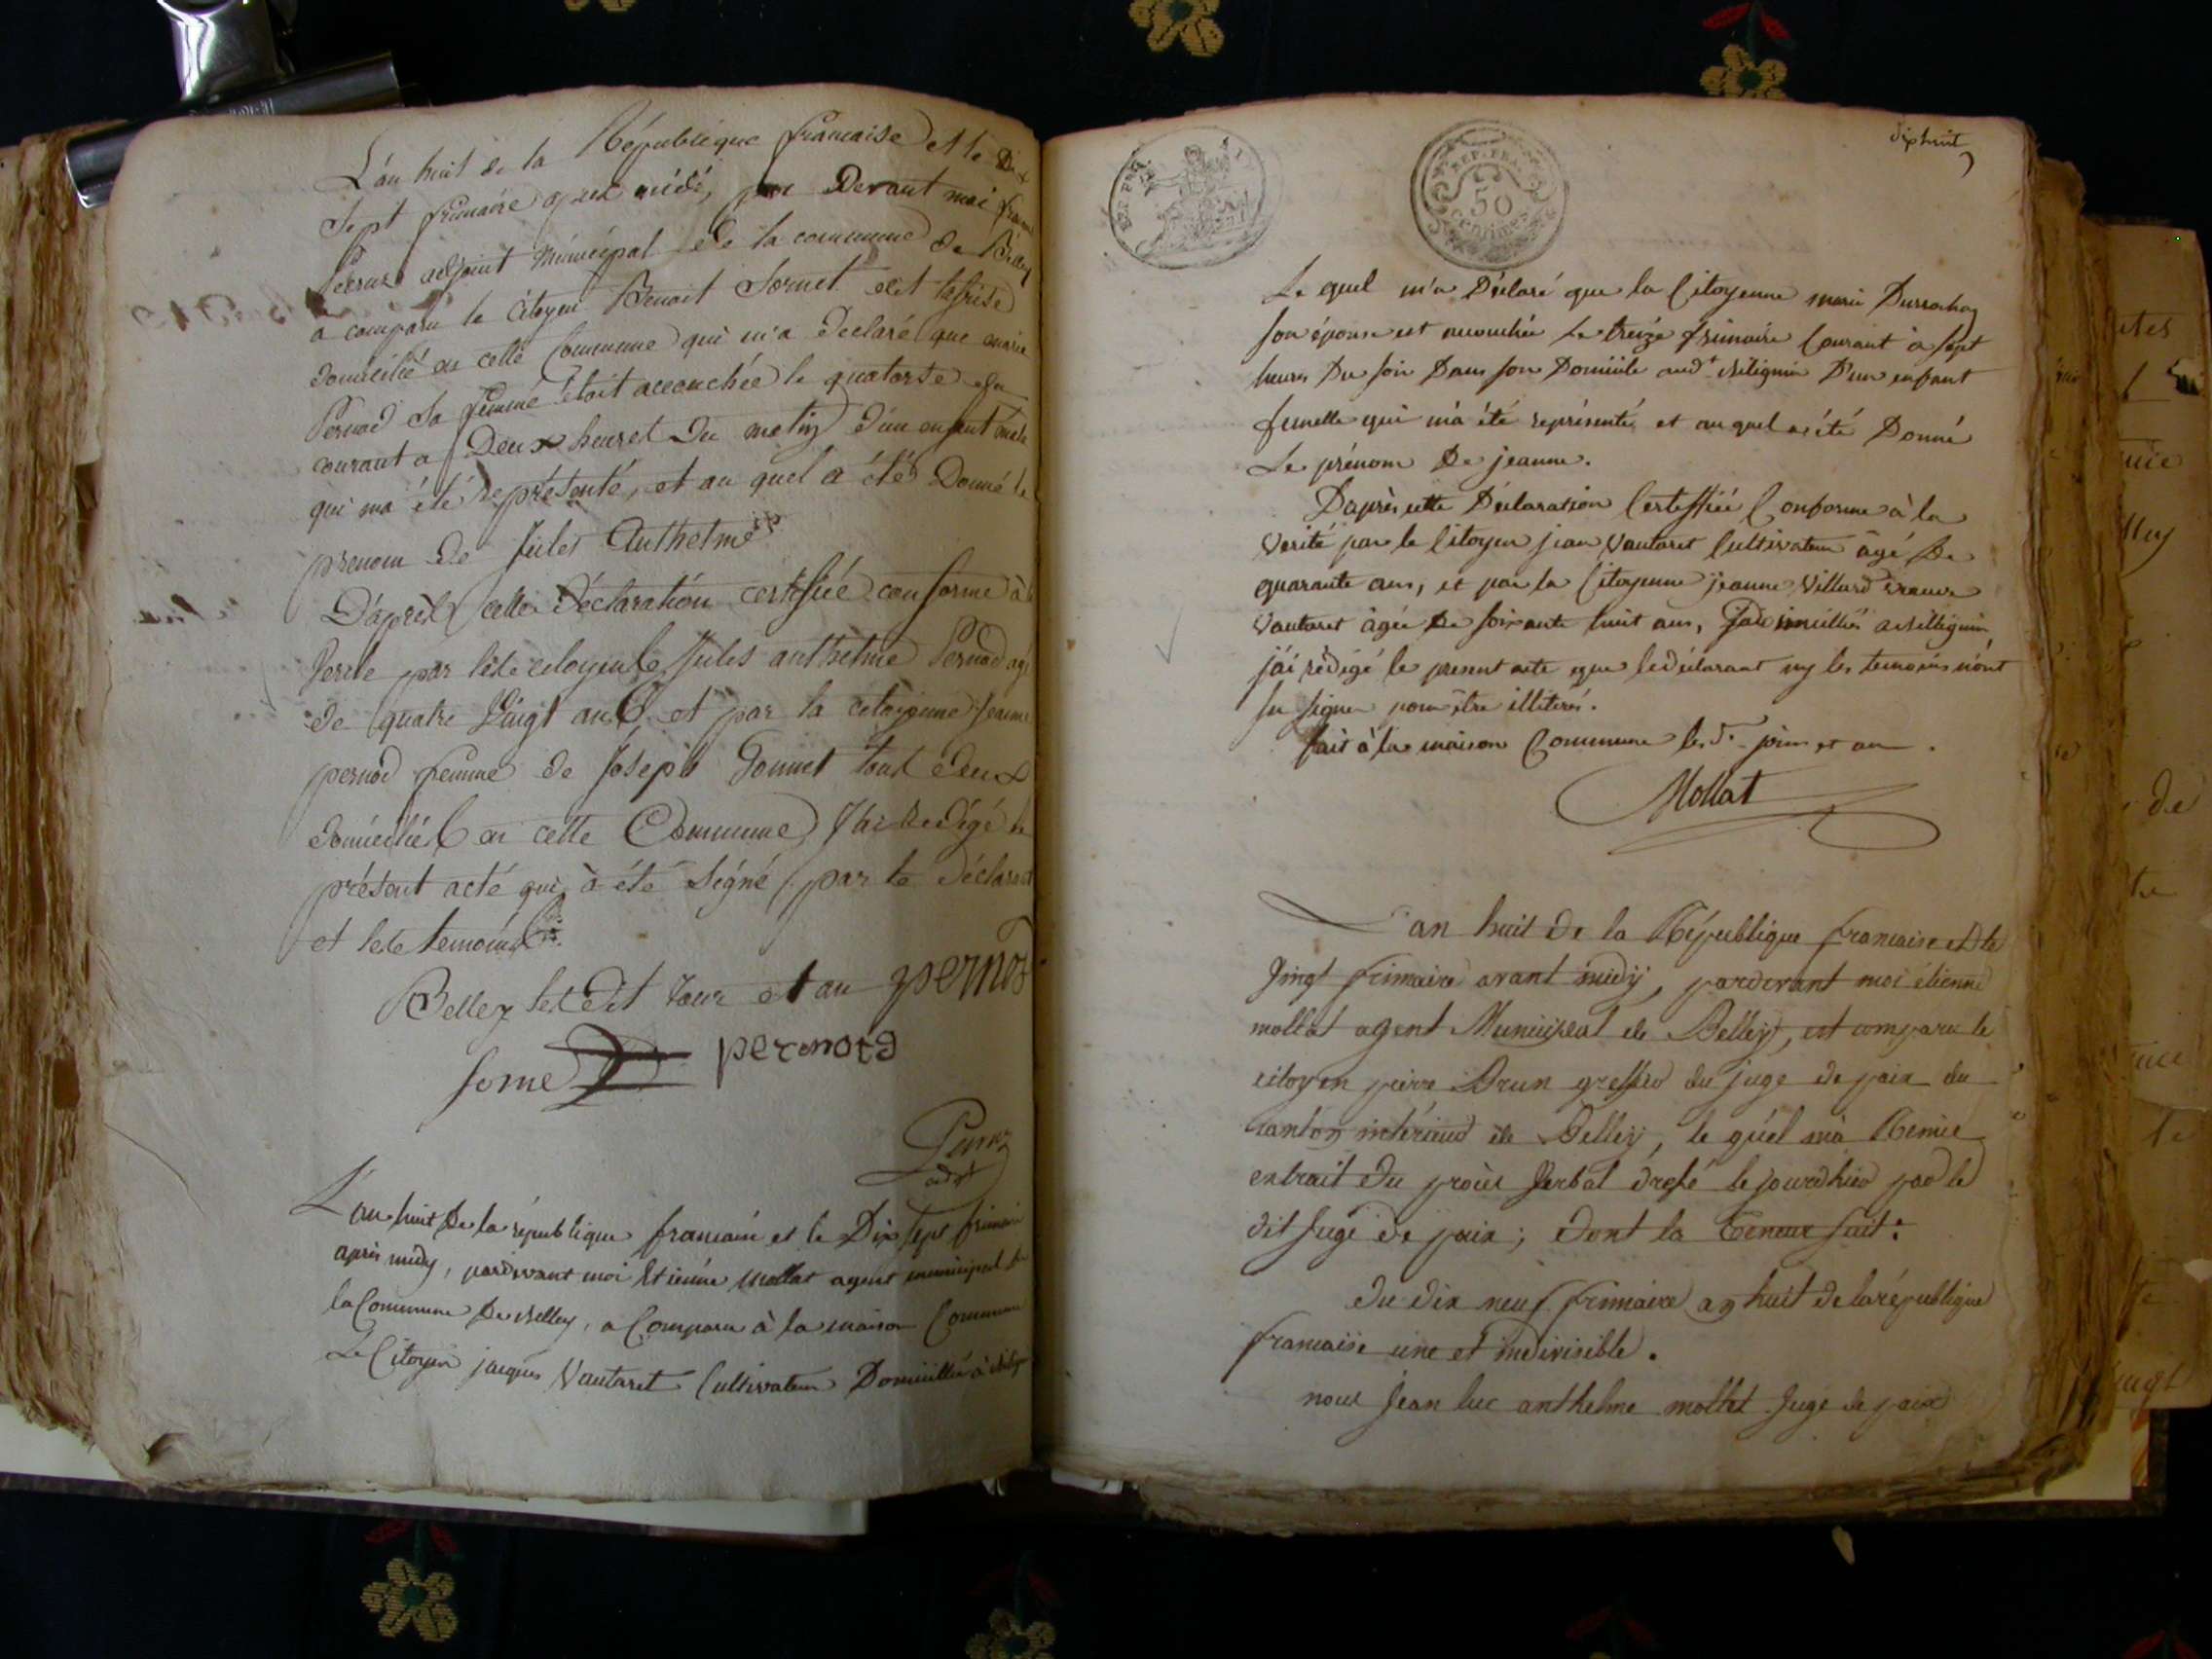 L'an huit de la République francaise et le Dix
Sept frimaire apres midi, par Devant moi
adjoint Municipal de la commune de Belley
a comparu le Citoyen Benoit Sornet dit
domicilié en cette Commune qui m'a declaré que marie
Pernod Sa femme étoit accouchée le quatorse du
courant a Deux heures Du matin d'un enfant male
qui ma été Représenté, et au quel a été Donné le
prenom de Jules Anthelme
D'après cette Déclaration certifiée conforme à la
Verité par citoyen Jules anthelme Pernod agé
de quatre Vaigt ans et par la citoyenne Jeanne
pernod femme de Joseph Gonnet tous deux
domiciliés en cette Commune J'ai Redigé le
présent acté qui à été Signé par le Déclarant
et temoins
Belley Jour et an pernod
sorne pernotd
adjt
L'an huit De la république francaise et le Dix Sept frimaire
après midy, pardevant moi Etienne Mollat agent municipal de
la Commune De Belley, a Comparu à la maison Commune
Le Citoyen jacques Vautaret Cultivateur Domicillié à
REP. FRA.
REP. FRA.
50
centimes
dixhuit
Le quel m'a Déclaré que la Citoyenne marie
son épouse est accouchée Le treize frimaire Courant à sept
heures Du soir Dans son Domicile D'un enfant
femelle qui m'a été représenté et au quel a été Donné
Le prénom De jeanne.
D'après cette Déclaration Certiffiée Conforme à la
verité par le Citoyen jean Vautaret Cultivateur âgé De
quarante ans, et par la Citoyenne jeanne Villard veuve
Vautaret âgée De soixante huit ans,
j'ai rédigé le present acte que le déclarant ny les temoins n'ont
su signer pour être illiterés.
fait à la maison Commune les d. jour et an.
Mollat
L'an huit De la République francaise et le
Vingt frimaire avant midy, pardevant moi étienne
mollat agent Municipal de Belley, est comparu le
citoyen peirre Brun greffier du juge de paix du
canton intérieur de Belley, le quel m'à Remis
extrait Du procès Verbal dressé le jourdhier par le
dit Juge de paix; dont la Teneur suit:
Du dix neuf frimaire an huit de la république
francaise une et indivisible.
nous Jean luc anthelme mollet Juge de paix